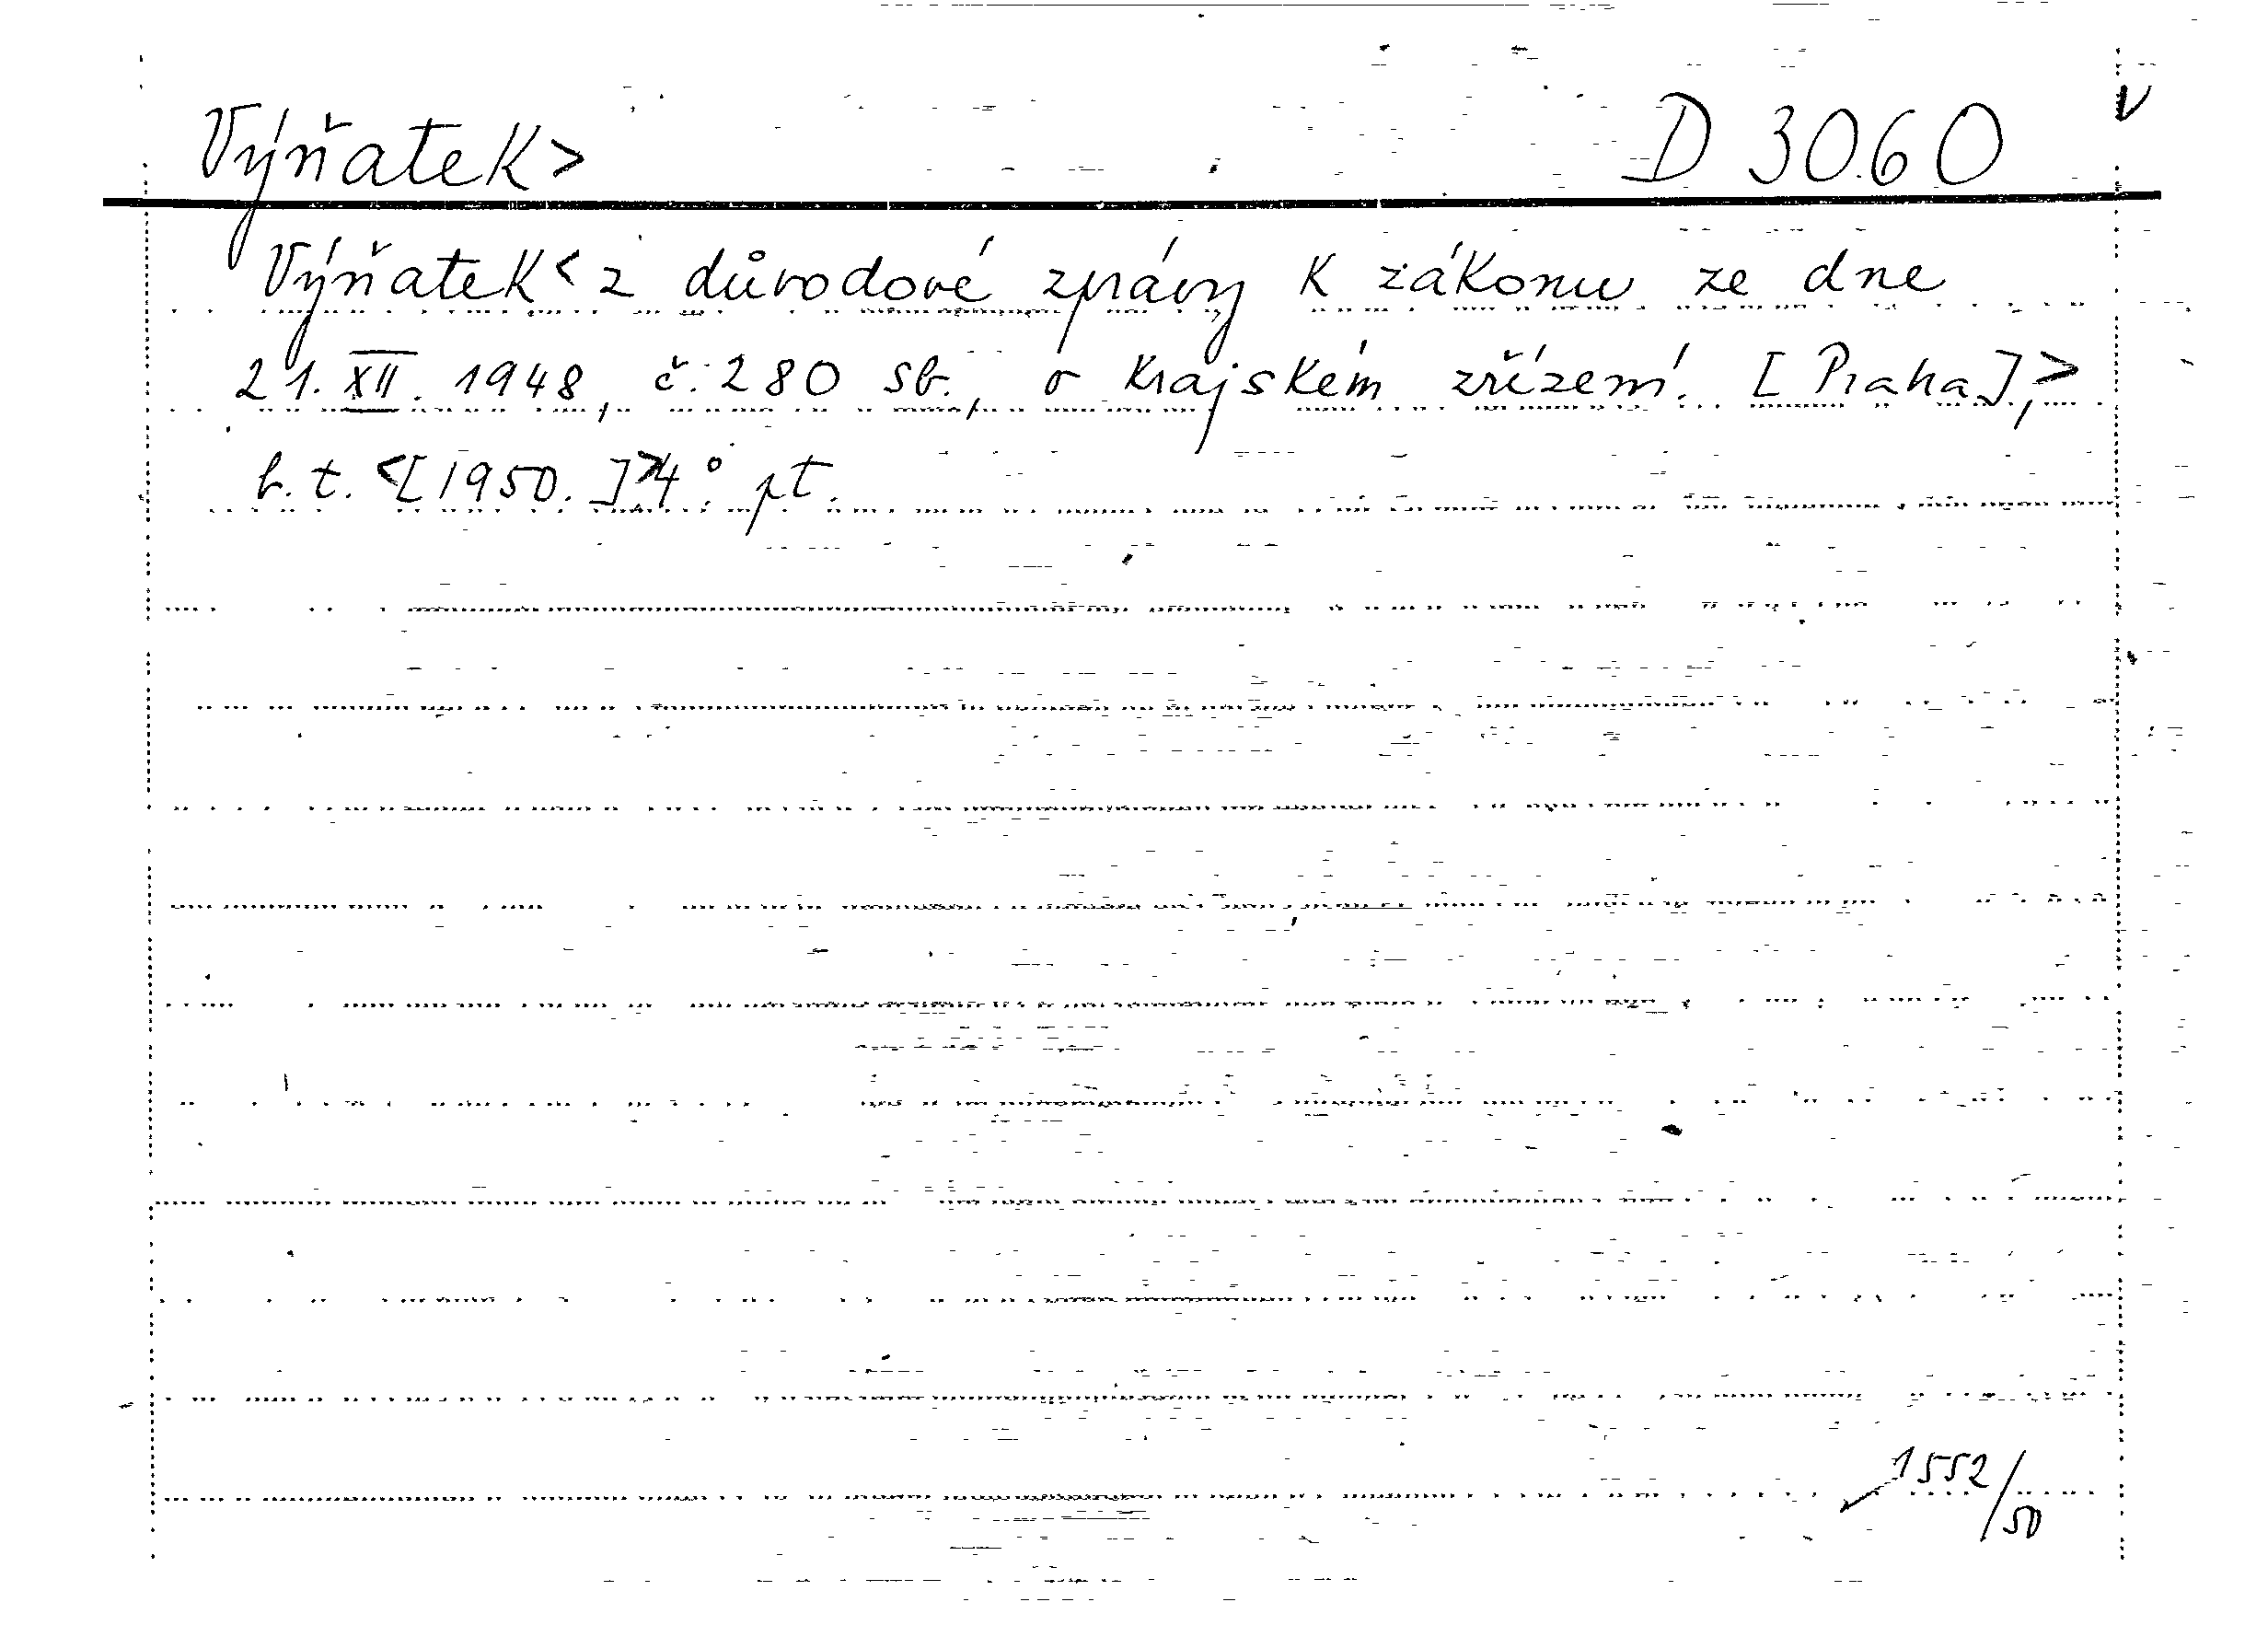 Výňatek> D 3060 V
Výňatek< z důvodové zprávy k zákonu ze dne
21. XII. 1948, č. 280 Sb., o krajském zřízení. [Praha],>
b. t. <[1950.]> 4° pt.
1552/50